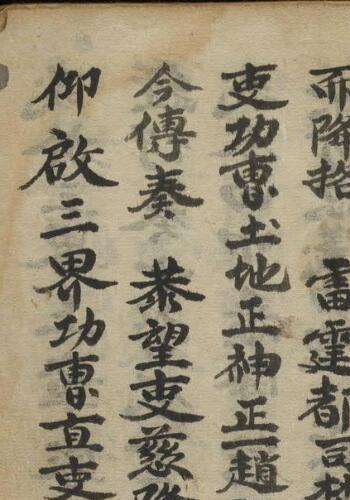 而降㧱 雷霆都司
吏功曹土地正神正一趙
今傳奏 恭望吏慈降
仰啟三界功曹直吏